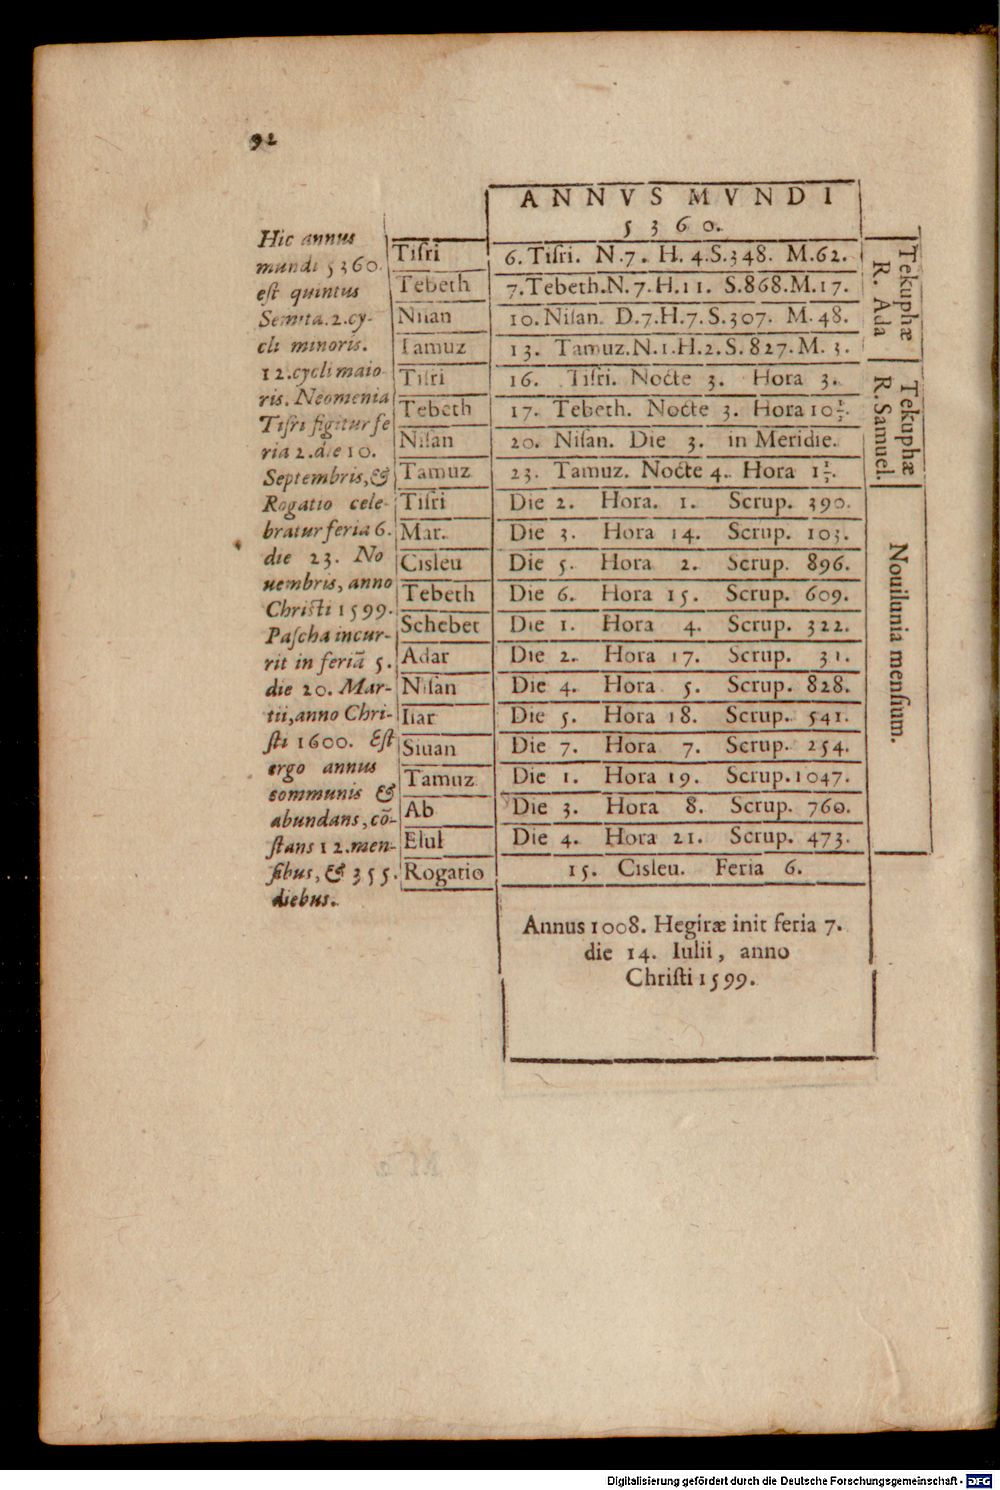 92
Hic annus
mundi 5360.
est quintus
Semita. 2. cy-
cli minoris.
12. cycli maio-
ris. Neomenia
Tisri figitur fe
ria 2. die 10.
Septembris, &
Rogatio cele-
bratur feria 6.
die 23. No
uembris, anno
Christi 1599.
Pascha incur-
rit in feriã 5.
die 20. Mar-
tii, anno Chri-
sti 1600. Est
ergo annus
communis &
abundans, cõ-
stans 12. men-
sibus, & 355.
diebus.
ANNVS MVNDI
5360.
Tisri 6. Tisri. N.7. H. 4. S.348. M.62.
Tebeth 7. Tebeth. N.7. H.11. S.868. M.17.
Nisan 10. Nisan. D.7. H.7. S.307. M. 48.
Tamuz 13. Tamuz. N.1. H.2. S. 827. M. 3.
Tekuphæ
R. Ada
Tisri 16. Tisri. Nocte 3. Hora 3.
Tebeth 17. Tebeth. Nocte 3. Hora 10 1/2.
Nisan 20. Nisan. Die 3. in Meridie.
Tamuz 23. Tamuz. Nocte 4. Hora 1 1/2.
Tekuphæ
R. Samuel.
Tisri Die 2. Hora. 1. Scrup. 390.
Mar. Die 3. Hora 14. Scrup. 103.
Cisleu Die 5. Hora 2. Scrup. 896.
Tebeth Die 6. Hora 15. Scrup. 609.
Schebet Die 1. Hora 4. Scrup. 322.
Adar Die 2. Hora 17. Scrup. 31.
Nisan Die 4. Hora 5. Scrup. 828.
Iiar Die 5. Hora 18. Scrup. 541.
Siuan Die 7. Hora 7. Scrup. 254.
Tamuz Die 1. Hora 19. Scrup. 1047.
Ab Die 3. Hora 8. Scrup. 760.
Elul Die 4. Hora 21. Scrup. 473.
Nouilunia mensium.
Rogatio 15. Cisleu. Feria 6.
Annus 1008. Hegiræ init feria 7.
die 14. Iulii, anno
Christi 1599.
Digitalisierung gefördert durch die Deutsche Forschungsgemeinschaft - DFG